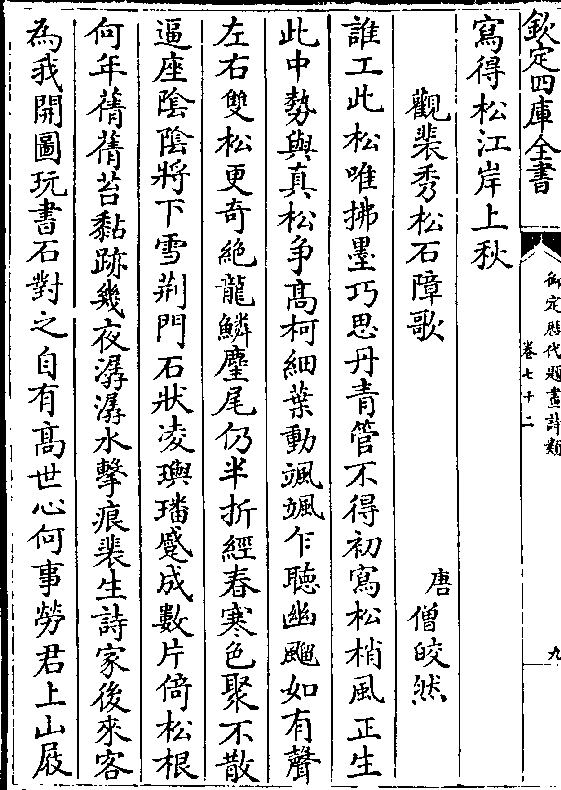 欽定四庫全書
御定歷代題畫詩類
卷七十二
九
寫得松江岸上秋
觀裴秀松石障歌
唐僧皎然
誰工此松唯拂墨巧思丹青管不得初寫松梢風正生
此中勢與真松争高柯細葉動颯颯乍聽幽颸如有聲
左右雙松更奇絶龍鱗麈尾仍半折經春寒色聚不散
逼座陰陰將下雪荆門石狀凌璵璠蹙成數片倚松根
何年蒨蒨苔黏跡幾夜潺潺水擊痕裴生詩家後來客
為我開圖玩書石對之自有髙世心何事勞君上山屐